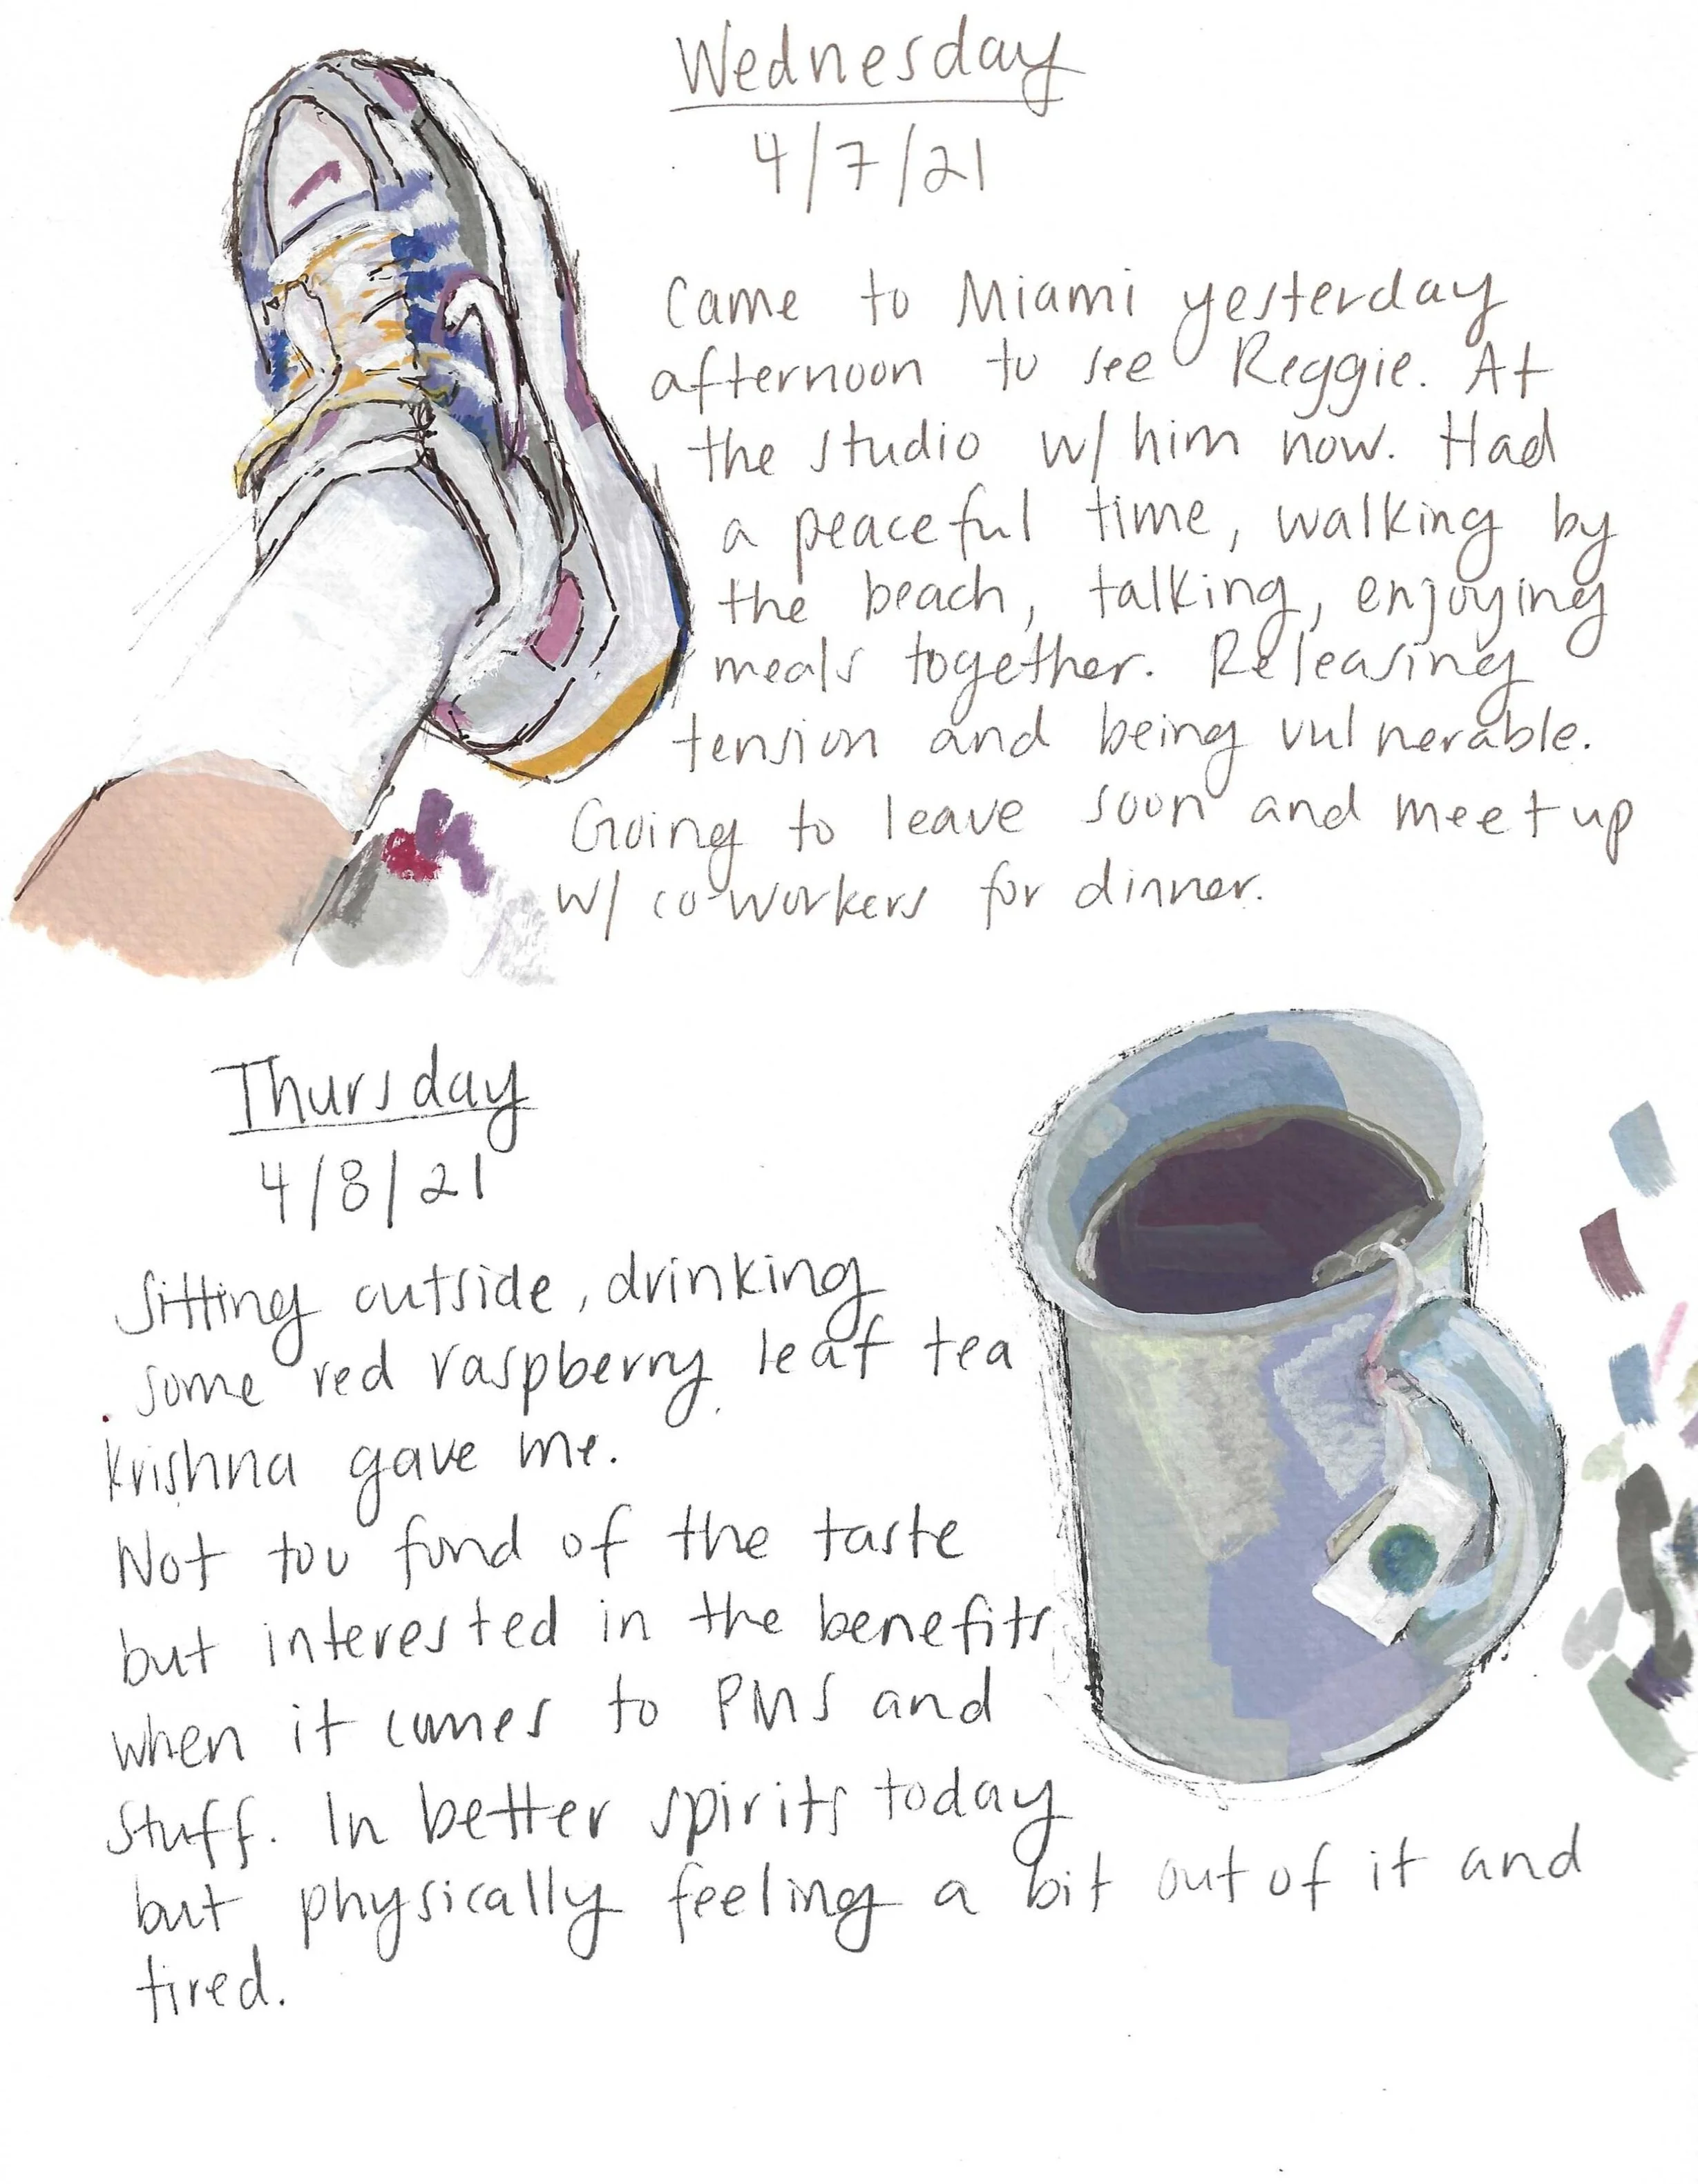 Wednesday
4/7/21
Came to Miami yesterday
afternoon to see Reggie. At
the studio w/ him now. Had
a peaceful time, walking by
the beach, talking, enjoying
meals together. Releasing
tension and being vulnerable.
Going to leave soon and meet up
w/ co-workers for dinner.
Thursday
4/8/21
Sitting outside, drinking
some red raspberry leaf tea
Krishna gave me.
Not too fond of the taste
but interested in the benefits
when it comes to PMS and
stuff. In better spirits today
but physically feeling a bit out of it and
tired.